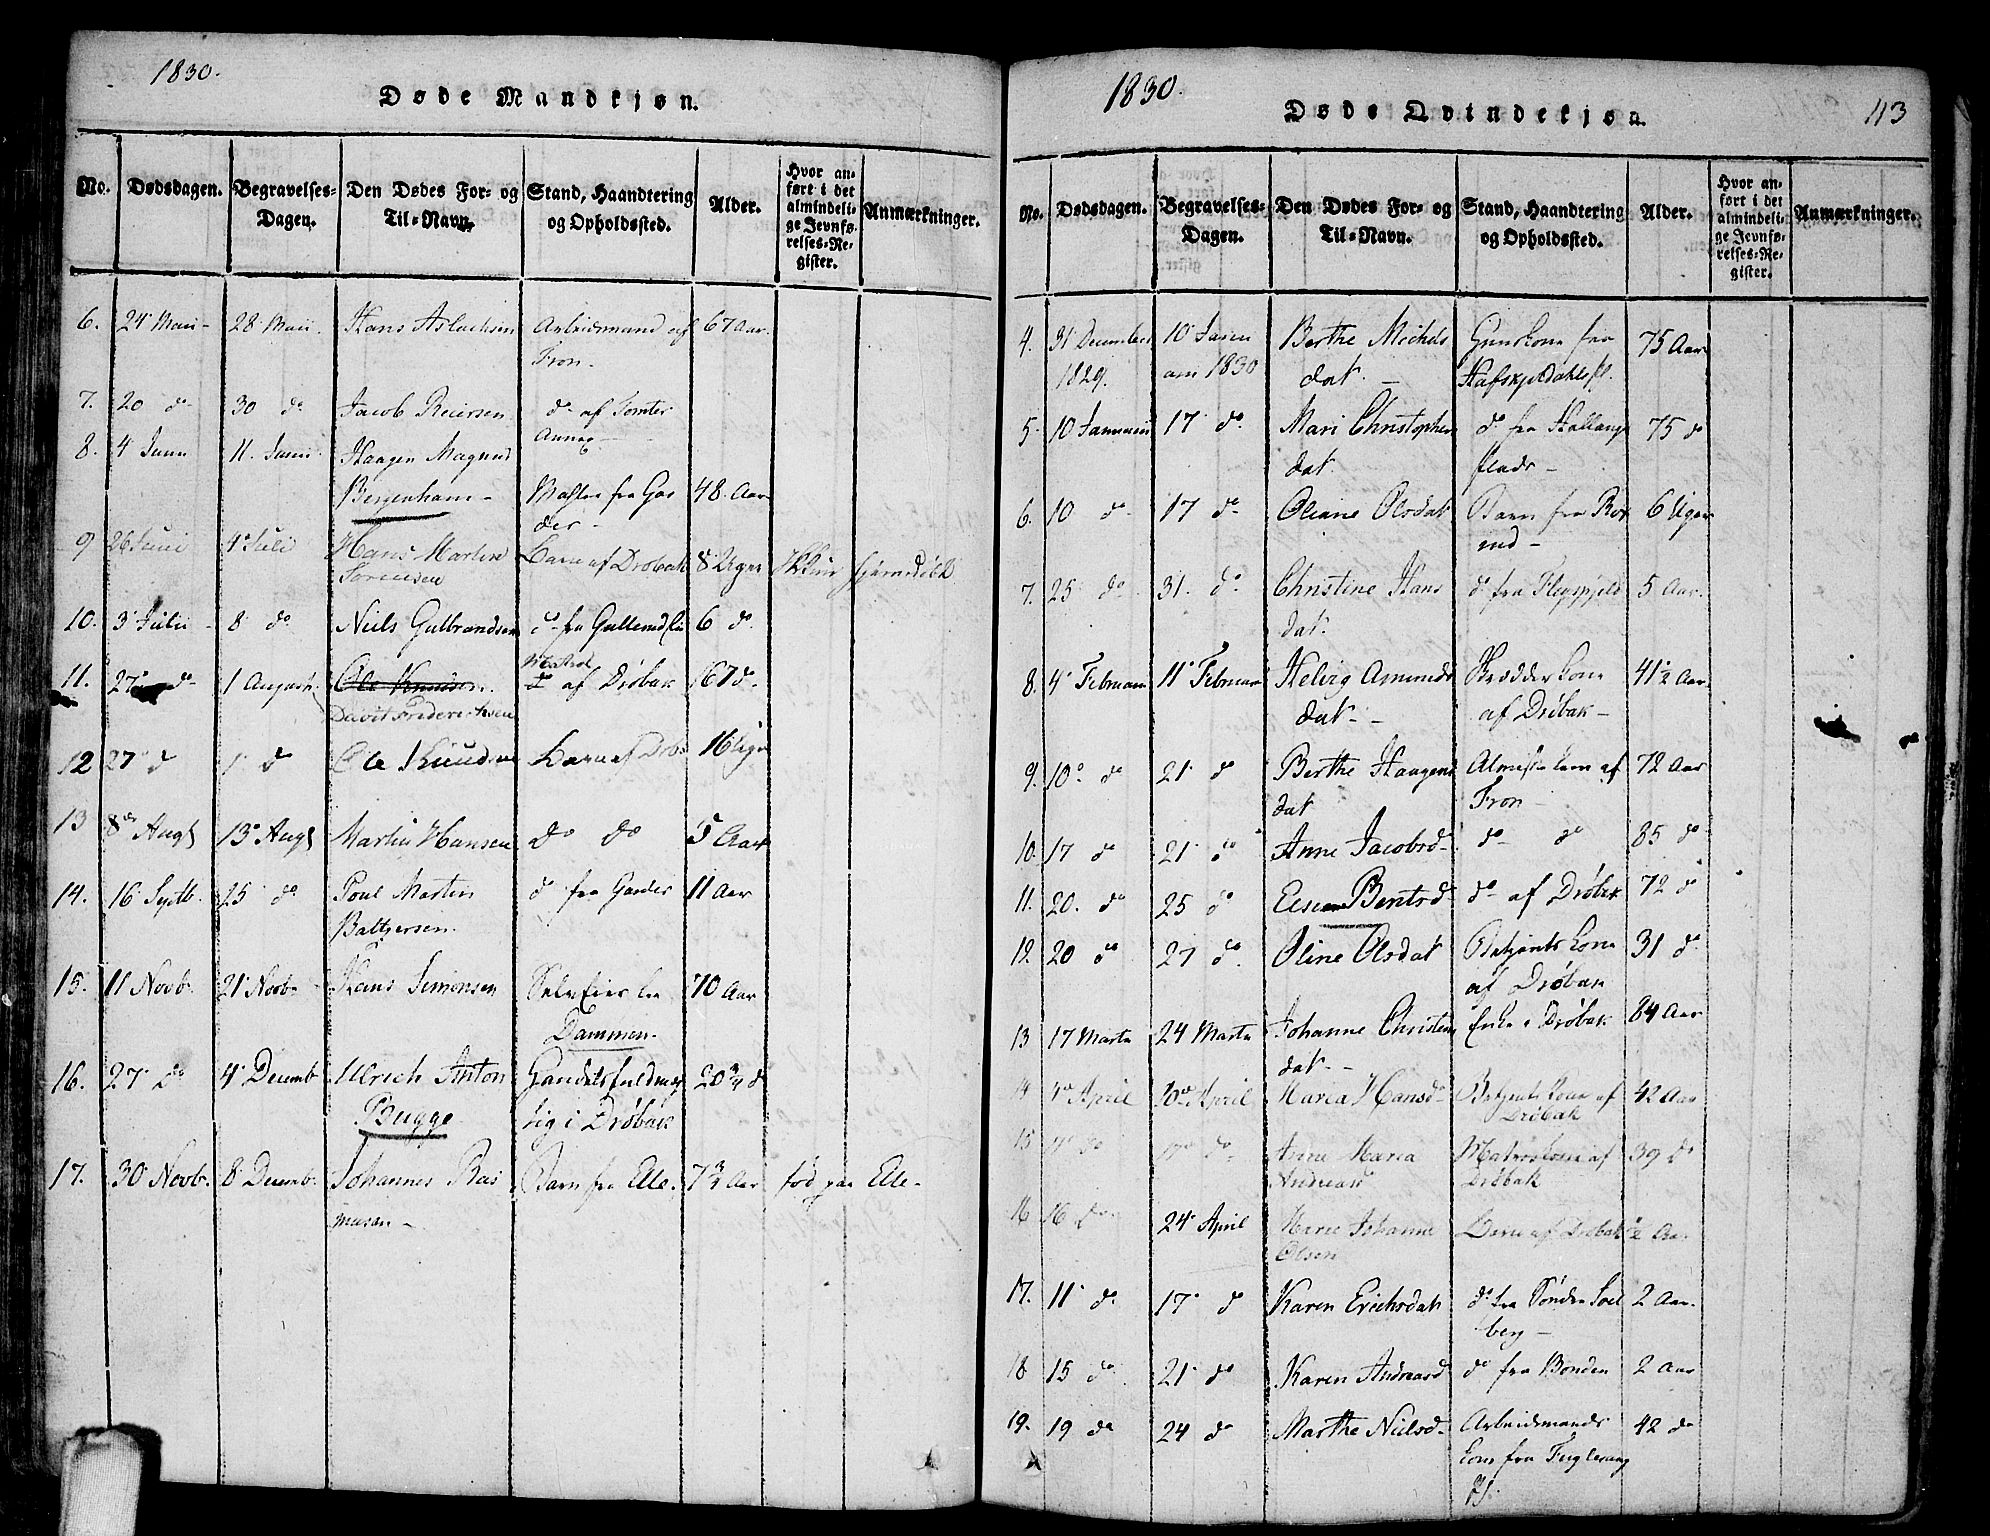 1830.
Døde Mandkjøn.
No. Dødsdagen. Begravelses-Dagen. Den Dødes For- og Til-Navn. Stand, Haandtering og Opholdssted. Alder. Hvor anført i det almindelige Jevnførelses-Register. Anmærkninger.
6. 24 Maii 28 Maii Hans Aslachsen Arbeidsmand af 67 Aar
Fron.
7. 20 do 30 do Jacob Reiersen do af Tomter
8. 4 Juni 11. Junii Haagen Magnus
Bergenham 48. Aar
9 26 Juni 4 Juli Hans Martin Barn af Drøbak 8 Uger
Sørensen
10. 3 Julii 8 do Niels Gulbrandsen do fra 6 do
Matros
11. 27 do 1 August Ole Knudsen do af Drøbak 67 do
Davit Frederichsen
12 27 d 1 d Ole Knudsen Barn af Drøb 16 Uger
13 8de Augt 13 Augt Martin Hansen do do 5 Aar
14. 16 Septb. 25 do Poul Morten d fra Garder 11 Aar
Baltzersen.
15. 11 Novb. 21 Novb Hans Simonsen Selveier fra 70 Aar
Dammen
16. 27 do 4 Decemb Ulrich Anton 20 3/4 d
Bugge tig i Drøbak
17. 30 Novb. 8 Decemb. Johannes Ras Barn fra Elle. 7 3/4 Aar fød paa Elle
musen
1830. 113
Døde Qvindekjøn.
No. Dødsdagen. Begravelses-Dagen. Den Dødes For- og Til-Navn. Stand, Haandtering og Opholdssted. Alder. Hvor anført i det almindelige Jevnførelses-Register. Anmærkninger.
4. 31 December 10 Janu Berthe Michels fra 75 Aar
1829. am 1830 dat.
5. 10 Januarii 17 do Mari Christophers do fra Hallangs 75 do
dat.
6. 10 do 17 do Oliane Olsdat Barn fra 6 Uger
7. 25 do 31. do Christine Hans do fra 5 Aar.
dat.
8. 4 Februar 11 Februar Helvig Amunds Skrædderkone 41 1/2 Aar
dat af Drøbak
9. 10 do 21 d Berthe Haagens af 72 Aar
dat Fron
10. 17 do 21 do Anne Jacobsd do d 85 do
11. 20. do 25 do Bentsd do af Drøbak 72 d
12. 20 do 27 do Oline Olsdat Betjents Kone 31 do
af Drøbak
13 17 Marts 24 Marts Johanne Christens Enke i Drøbak 84 Aar
dat
14 4 April April Maria Hansd Betjents Kone af 42 Aar
Drøbak
15 do do Anne Maria Matroskone af 39 do
Andreasd Drøbak
16 16 do 24 April Marie Johanne Barn af Drøbak Aar
Olsen
17. 11 do 17 d Karen Erichsdat do fra Søndre Soel 2 Aar.
berg
18 15 do 21 do Karen Andreasd do fra Bonden 2 Aar
19. 19 do 24 do Marthe Nielsd Arbeidsmands 42 do
Kone fra